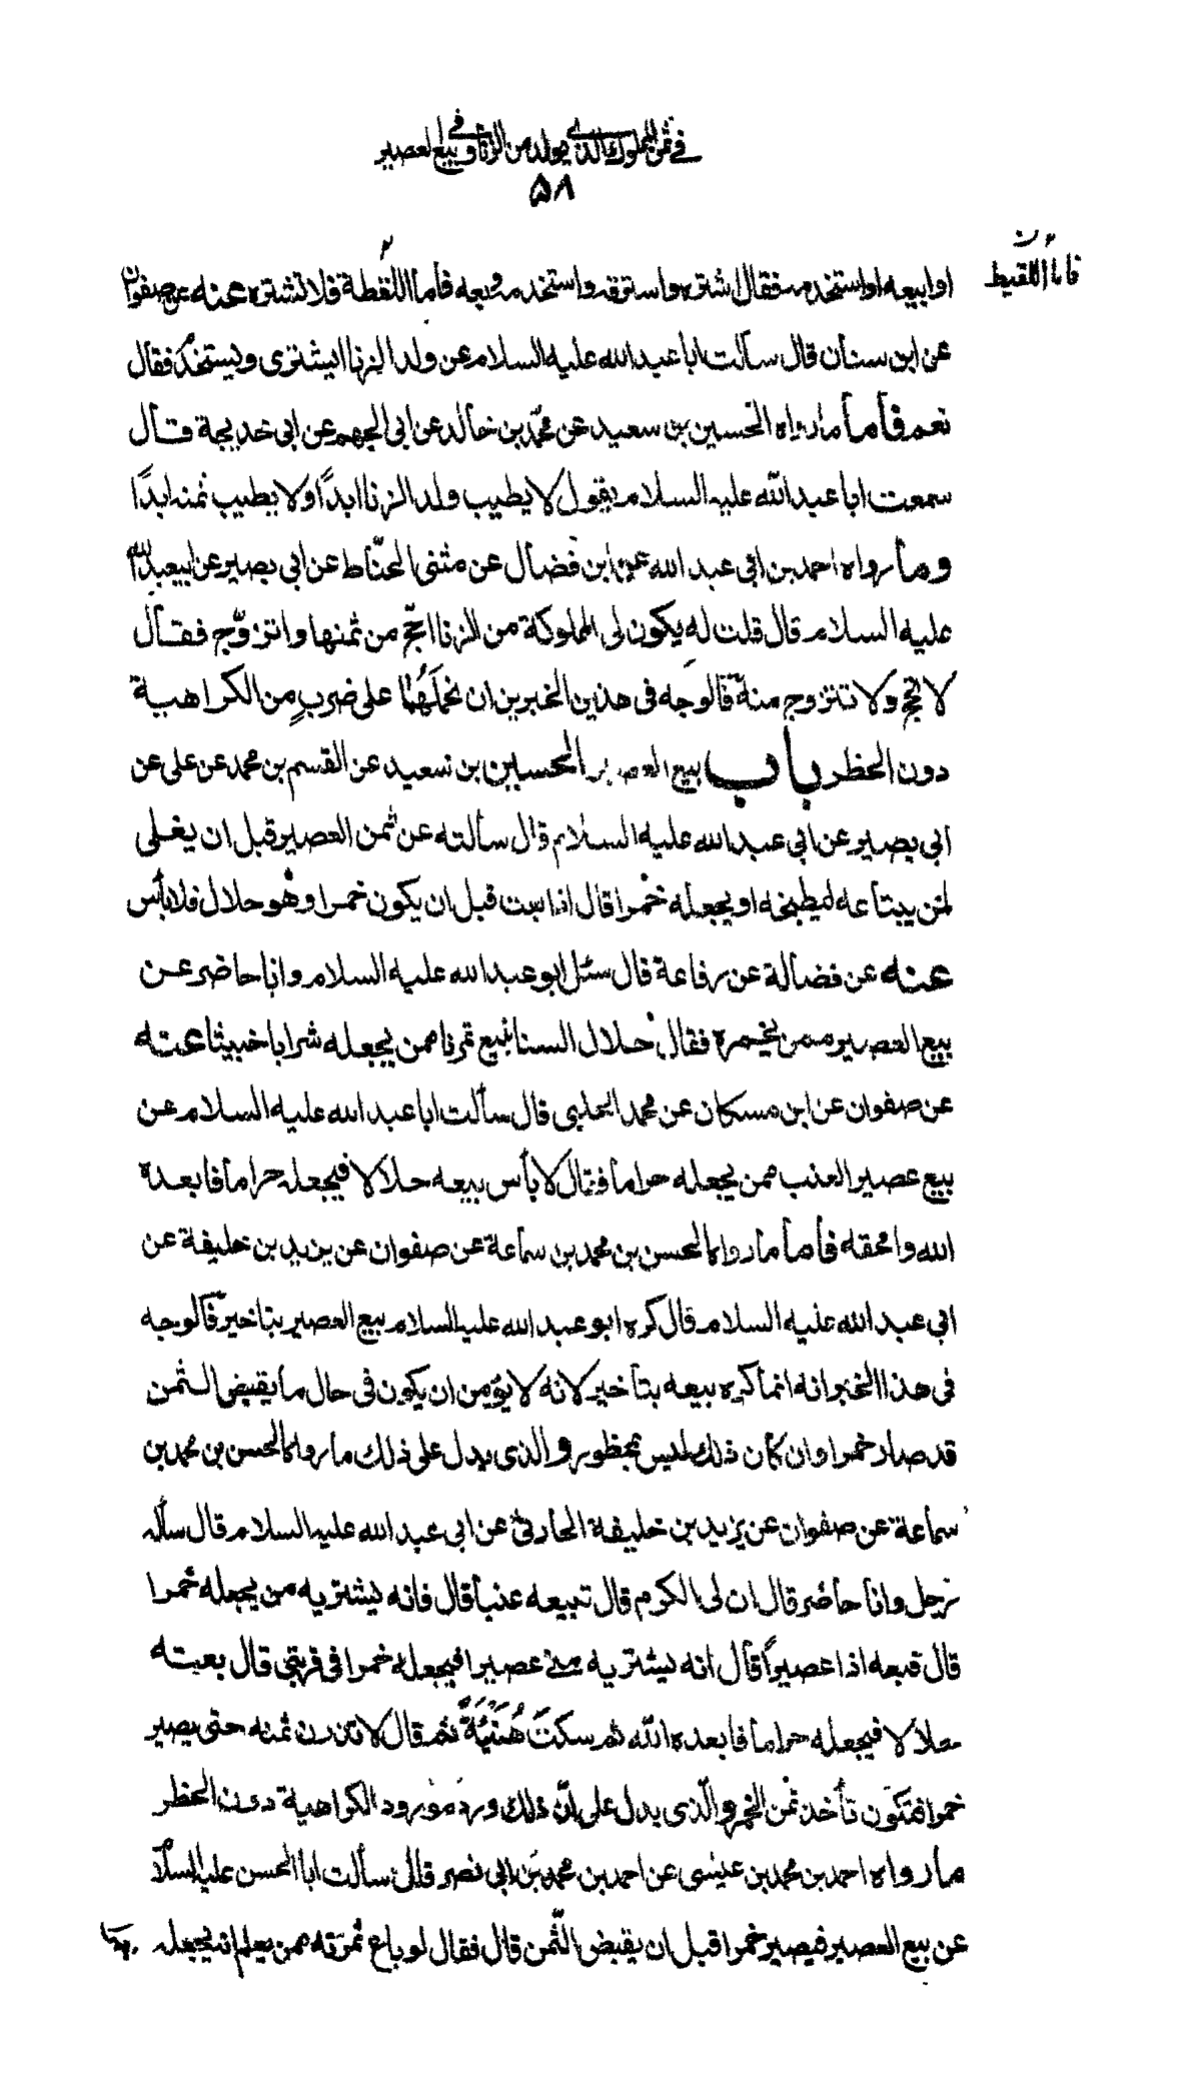 في ثمن المملوك الذي يولد من الزنا وفي بيع العصير
۵۸
فاما اللقيط ن
او ابيعه او استخدمه فقال اشتره واسترقه واستخدمه وبعه فاما اللقطة فلا تشتره عنه عن صفوان
عن ابن سنان قال سألت ابا عبد الله عليه السلام عن ولد الزنا ايشترى ويستخدم فقال
نعم فأما مارواه الحسين بن سعيد عن محمد بن خالد عن ابى الجهم عن ابى خديجة قال
سمعت ابا عبد الله عليه السلام يقول لا يطيب ولد الزنا ابدًا ولا يطيب ثمنه ابدًا
وما رواه احمد بن ابي عبد الله عن ابن فضال عن مثنى الحنّاط عن ابي بصير عن ابيعبد الله
عليه السلام قال قلت له يكون لى المملوكة من الزنا احجّ من ثمنها واتزوّج فقال
لا تحج ولا تتزوج منه فالوجه فى هذين الخبرين ان نحملَهُما على ضربٍ من الكراهية
دون الحظر باب بيع العصير الحسين بن سعيد عن القسم بن محمد عن على عن
ابى بصير عن ابي عبد الله عليه السلام قال سألته عن ثمن العصير قبل ان يغلى
لمن يبتاعه ليطبخه او يجعله خمرا قال اذا بعت قبل ان يكون خمرا وهو حلال فلا بأس
عنه عن فضالة عن رفاعة قال سئل ابو عبد الله عليه السلام وانا حاضر عن
بيع العصير ممن يخمره فقال حلال السنا نبيع تمرنا ممن يجعله شرابا خبيثا عنه
عن صفوان عن ابن مسكان عن محمد الحلبى قال سألت ابا عبد الله عليه السلام عن
بيع عصير العنب ممن يجعله حراما فقال لا بأس ببيعه حلالا فيجعله حراما فابعده
الله واسحقه فأما ما رواه الحسن بن محمد بن سماعة عن صفوان عن يزيد بن خليفة عن
ابي عبد الله عليه السلام قال كره ابو عبد الله عليه السلام بيع العصير بتاخير فالوجه
فى هذا الخبر انه انما كره بيعه بتأخير لانه لا يؤمن ان يكون فى حال ما يقبض الثمن
قد صار خمرا وان كان ذلك ليس بمحظور والذى يدل على ذلك ما رواه الحسن بن محمد بن
سماعة عن صفوان عن يزيد بن خليفة الحارثى عن ابى عبد الله عليه السلام قال سأله
رجل وانا حاضر قال ان لى الكروم قال تبيعه عنبا قال فانه يشتريه من يجعله خمرا
قال فبعه اذا عصيراً قال انه يشتريه منى عصيرا فيجعله خمرا فى قربتي قال بعته
حلالا فيجعله حراما فابعده الله ثم سكت هُنَيْئَةً ثم قال لا تذرن ثمنه حتى يصير
خمرا فتكون تأخذ ثمن الخمر والّذى يدل على انّ ذلك ورد مورود الكراهية دون الحظر
ما رواه احمد بن محمد بن عيسى عن احمد بن محمد بن ابي نصر قال سألت ابا الحسن عليه السلام
عن بيع العصير فيصير خمرا قبل ان يقبض الثّمن قال فقال لو باع ثمرته ممن يعلم انه يجعله